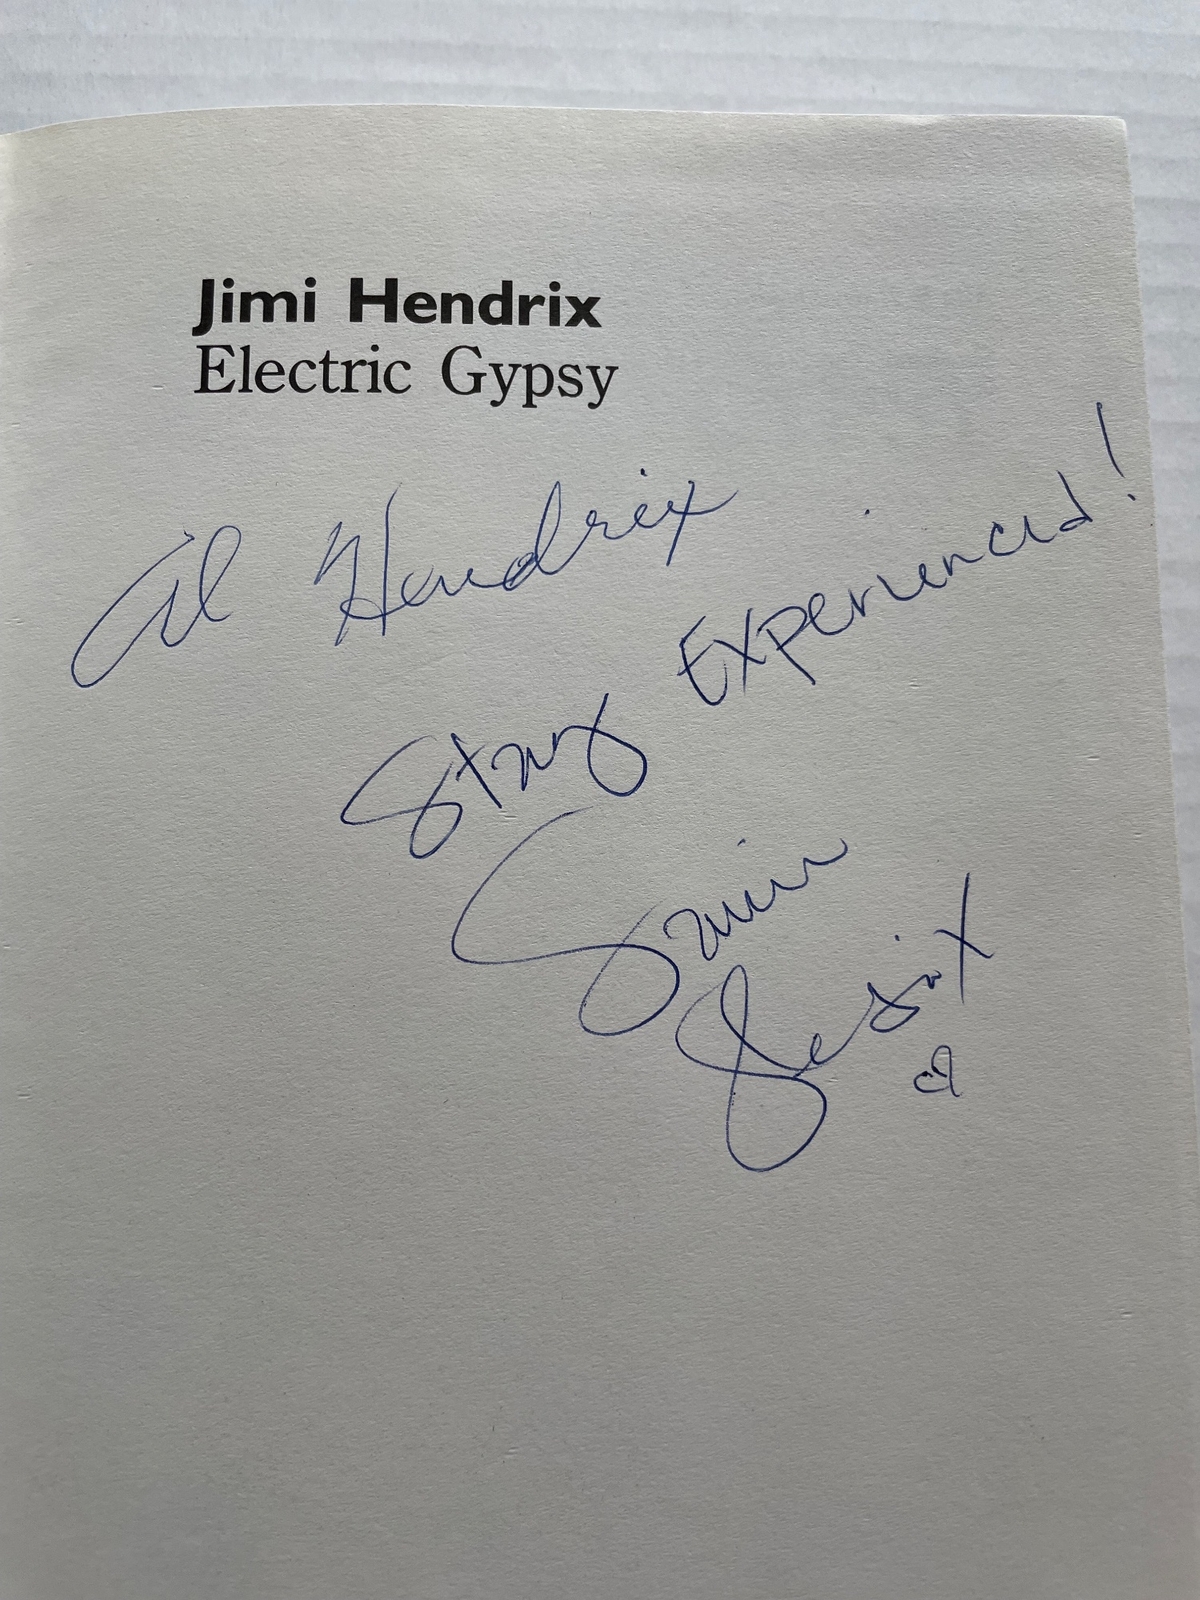 Jimi Hendrix
Electric Gypsy
Al Hendrix
Stay Experienced!